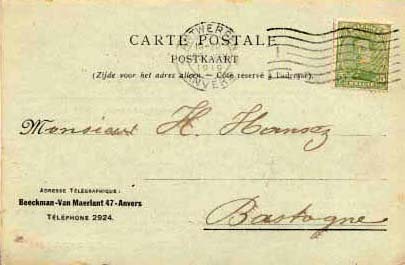 CARTE POSTALE
POSTKAART
(Zijde voor het adres alleen. — Côté réservé à l'adresse).
Monsieur H. Hansez
ADRESSE TÉLÉGRAPHIQUE :
Beeckman-Van Maerlant 47-Anvers
TÉLÉPHONE 2924.
Bastogne